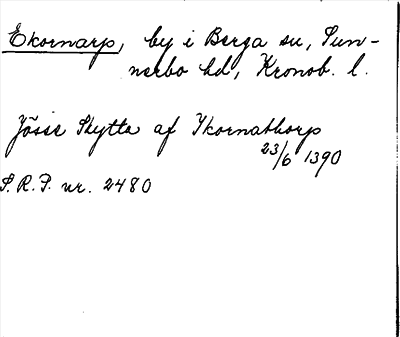 Ekornarp, by i Berga sn, Sun-
nerbo hd, Kronob. l.
Jösse Skytte af Ykornathorp
23/6 1390
S.R.P. nr. 2480